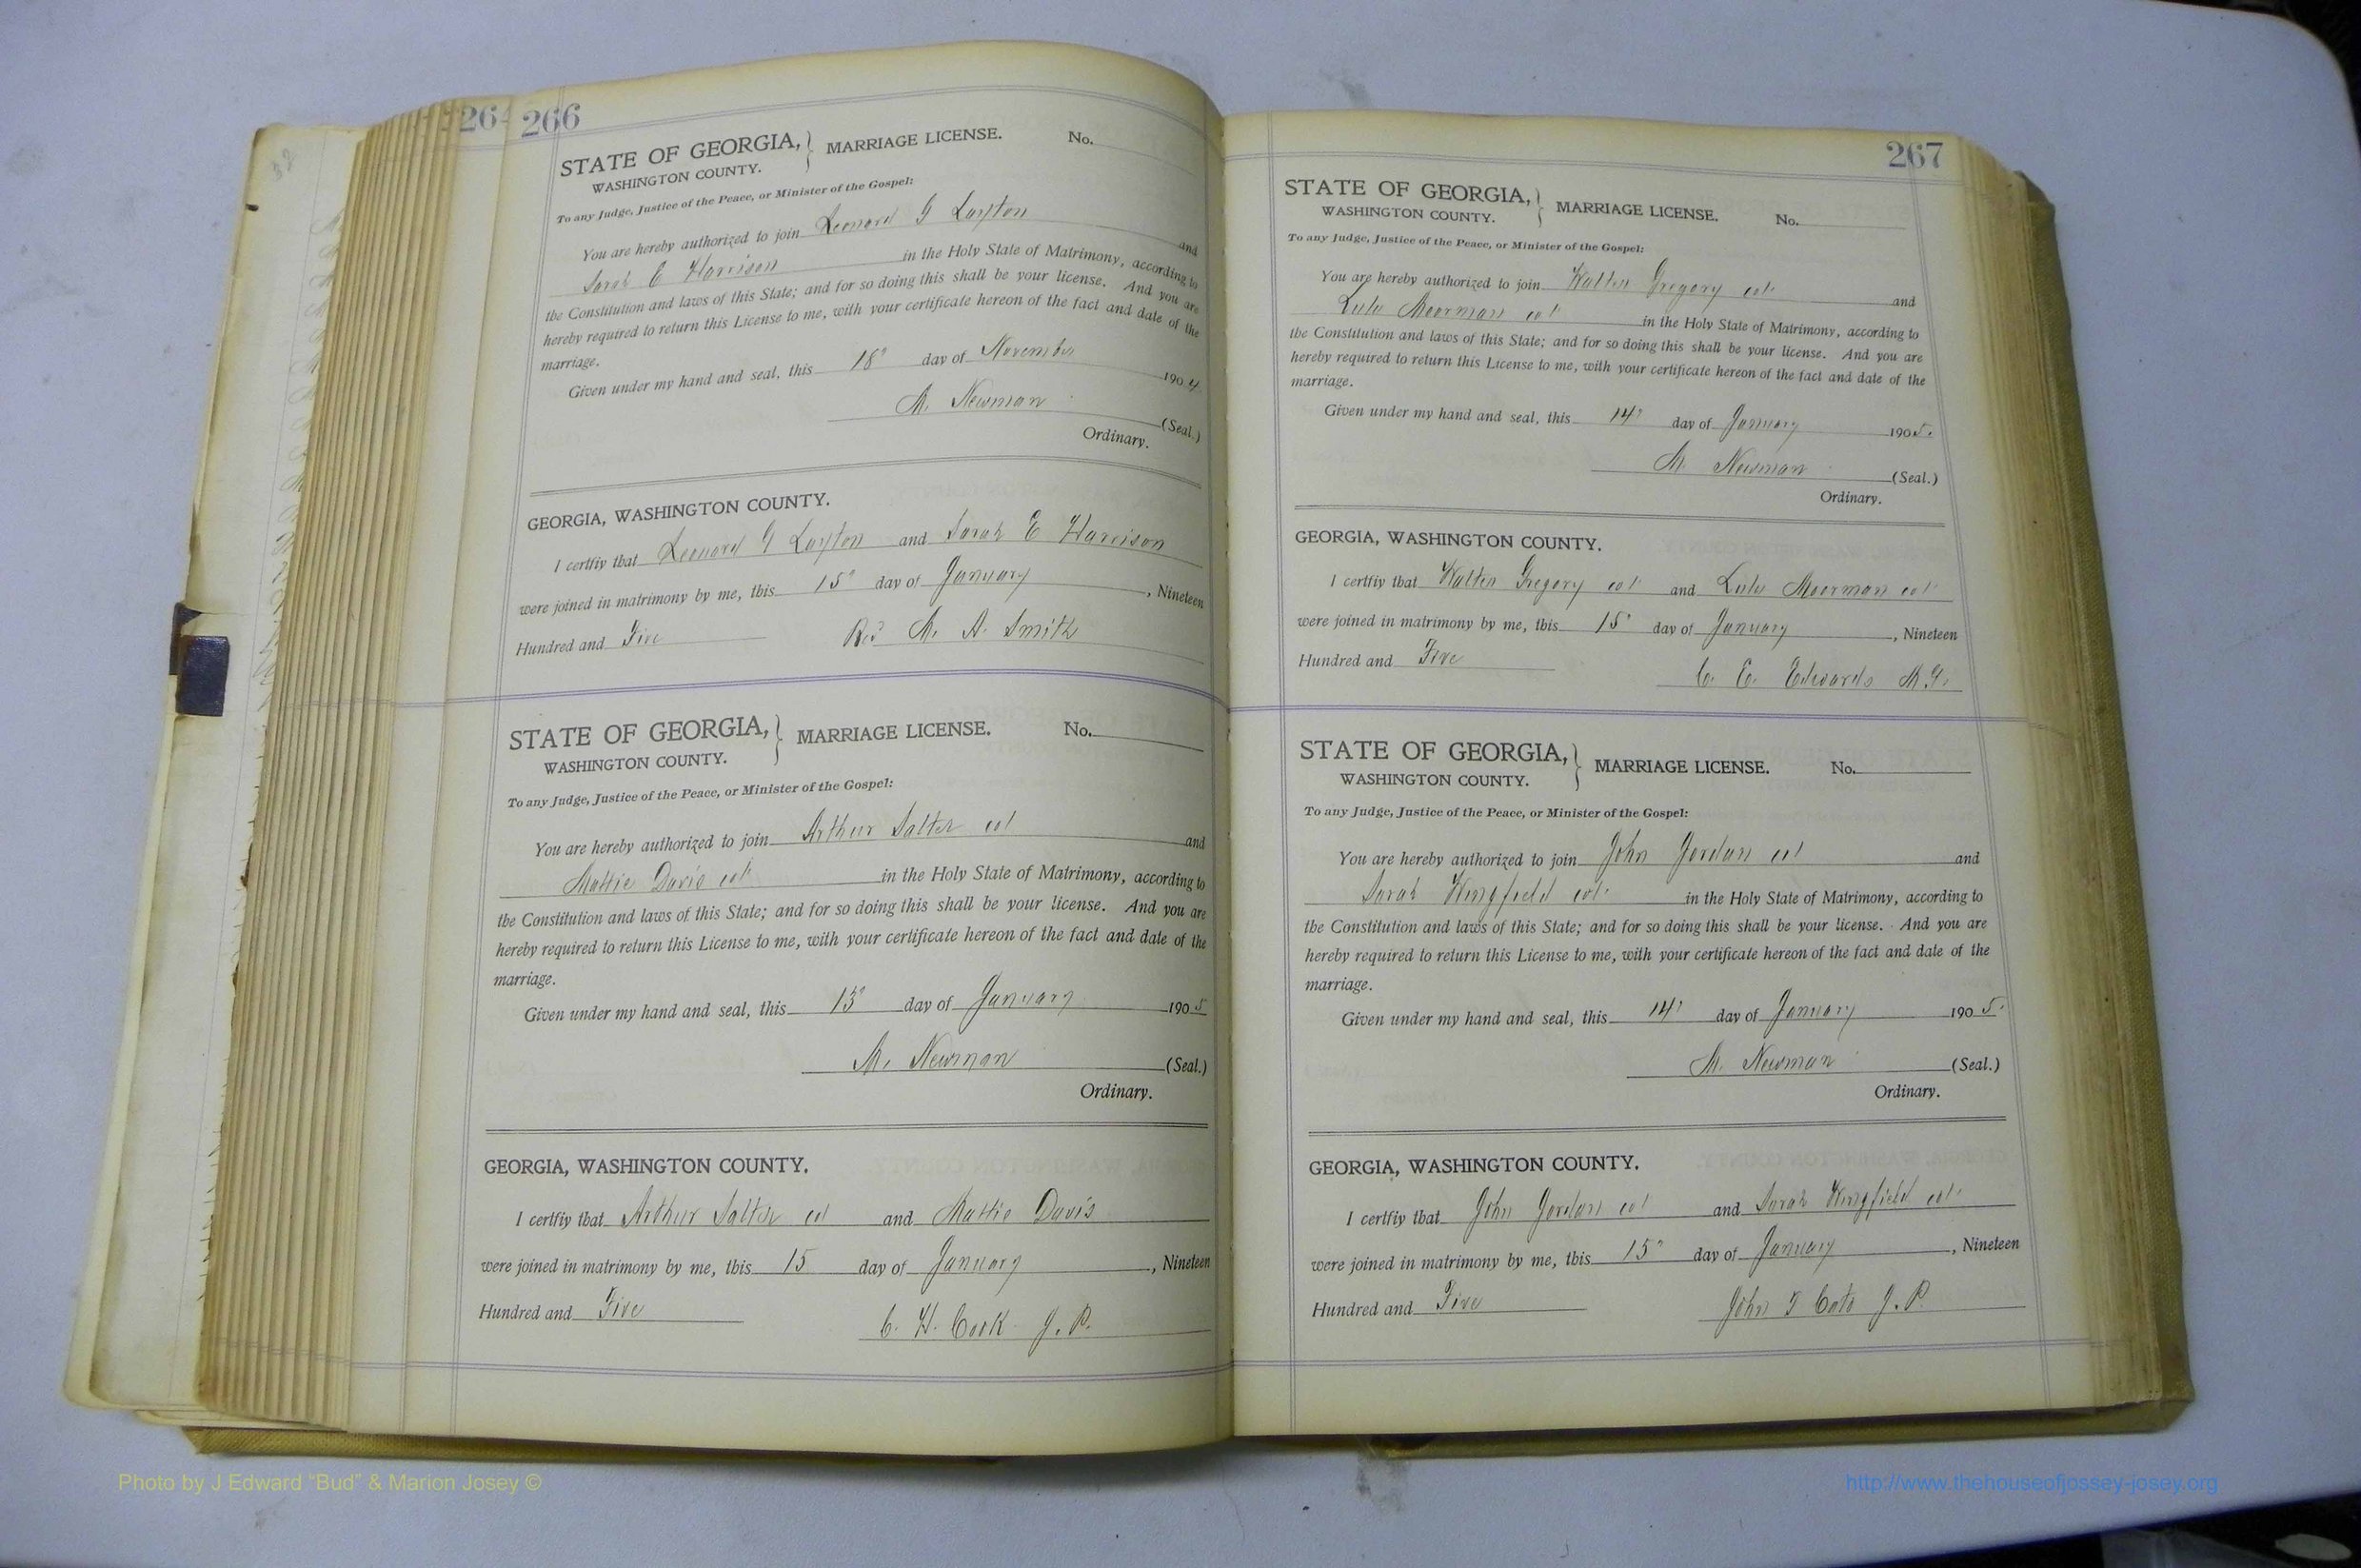 264
266
STATE OF GEORGIA, } MARRIAGE LICENSE. No.
WASHINGTON COUNTY.
To any Judge, Justice of the Peace, or Minister of the Gospel:
You are hereby authorized to join Leonard G Layton and
Sarah E Harrison in the Holy State of Matrimony, according to
the Constitution and laws of this State; and for so doing this shall be your license. And you are
hereby required to return this License to me, with your certificate hereon of the fact and date of the
marriage.
Given under my hand and seal, this 18" day of November 1904
M. Newman (Seal.)
Ordinary.
GEORGIA, WASHINGTON COUNTY.
I certfiy that Leonard G Layton and Sarah E Harrison
were joined in matrimony by me, this 15" day of January, Nineteen
Hundred and Five Rev M. A. Smith
STATE OF GEORGIA, } MARRIAGE LICENSE. No.
WASHINGTON COUNTY.
To any Judge, Justice of the Peace, or Minister of the Gospel:
You are hereby authorized to join Arthur Salter col and
Mattie Davis col in the Holy State of Matrimony, according to
the Constitution and laws of this State; and for so doing this shall be your license. And you are
hereby required to return this License to me, with your certificate hereon of the fact and date of the
marriage.
Given under my hand and seal, this 13" day of January 1905
M. Newman (Seal.)
Ordinary.
GEORGIA, WASHINGTON COUNTY.
I certfiy that Arthur Salter col and Mattie Davis
were joined in matrimony by me, this 15 day of January, Nineteen
Hundred and Five C. H. Cook J. P.
267
STATE OF GEORGIA, } MARRIAGE LICENSE. No.
WASHINGTON COUNTY.
To any Judge, Justice of the Peace, or Minister of the Gospel:
You are hereby authorized to join Walter Gregory col and
Lula Moorman col in the Holy State of Matrimony, according to
the Constitution and laws of this State; and for so doing this shall be your license. And you are
hereby required to return this License to me, with your certificate hereon of the fact and date of the
marriage.
Given under my hand and seal, this 14" day of January 1905.
M. Newman (Seal.)
Ordinary.
GEORGIA, WASHINGTON COUNTY.
I certfiy that Walter Gregory col and Lula Moorman col
were joined in matrimony by me, this 15" day of January, Nineteen
Hundred and Five
C. E. Edwards M.G.
STATE OF GEORGIA, } MARRIAGE LICENSE. No.
WASHINGTON COUNTY.
To any Judge, Justice of the Peace, or Minister of the Gospel:
You are hereby authorized to join John Jordan col and
Sarah Wingfield col in the Holy State of Matrimony, according to
the Constitution and laws of this State; and for so doing this shall be your license. And you are
hereby required to return this License to me, with your certificate hereon of the fact and date of the
marriage.
Given under my hand and seal, this 14" day of January 1905.
M. Newman (Seal.)
Ordinary.
GEORGIA, WASHINGTON COUNTY.
I certfiy that John Jordan col and Sarah Wingfield col
were joined in matrimony by me, this 15" day of January, Nineteen
Hundred and Five John T Cato J. P.
Photo by J Edward “Bud” & Marion Josey ©
http://www.thehouseofjossey-josey.org